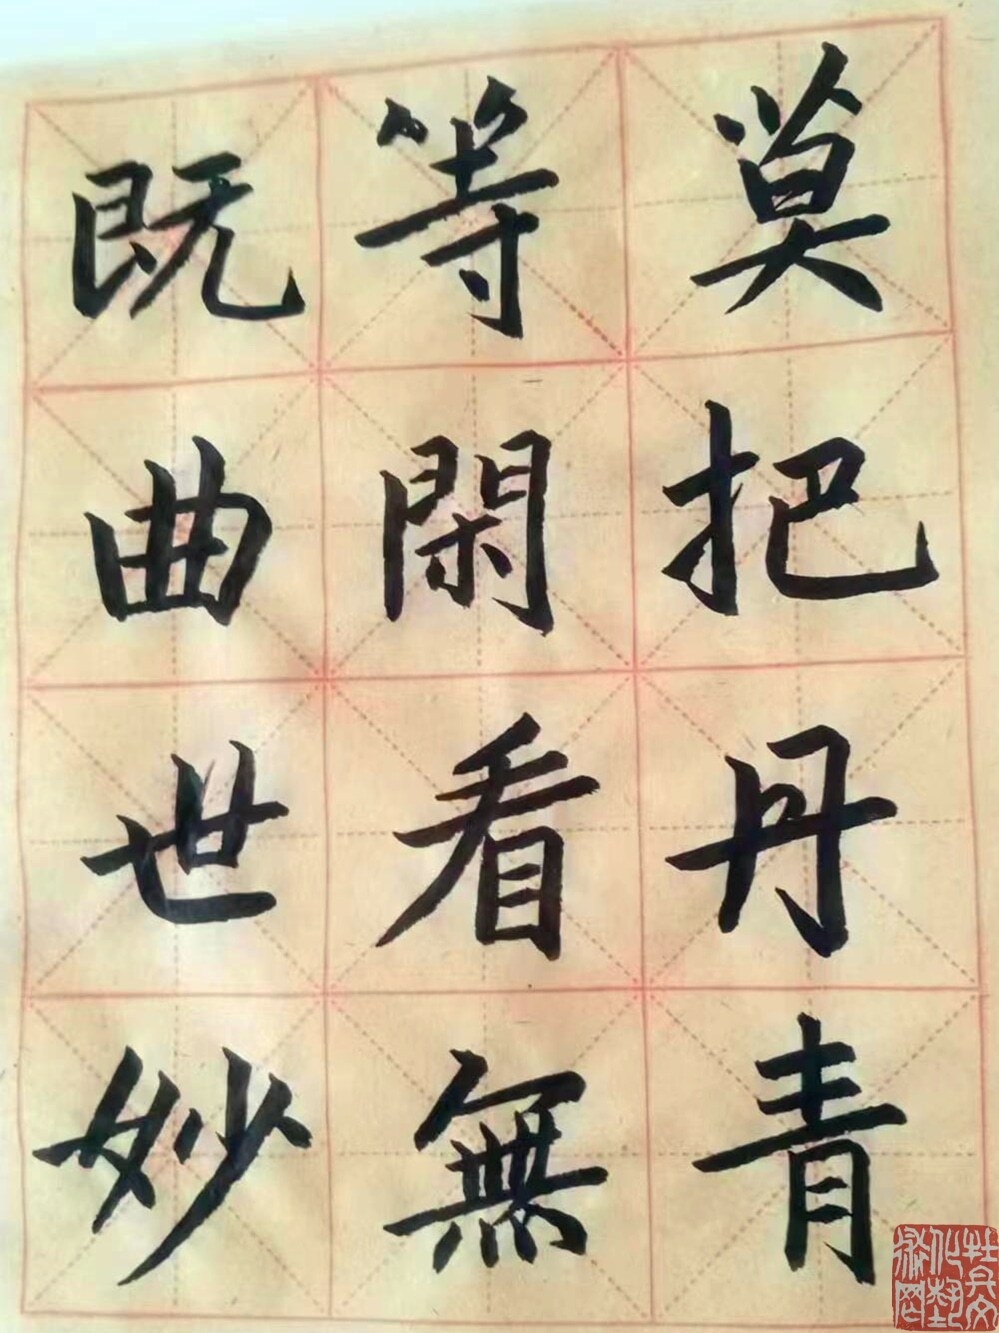 莫把丹青
等閑看無
既曲世妙